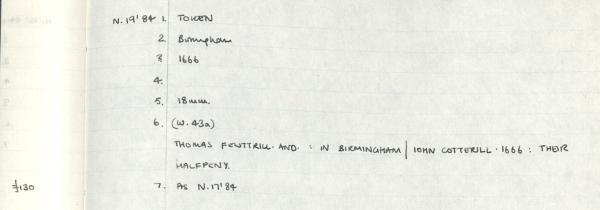 N.19'84 1. TOKEN
2 Birmingham
3 1666
4.
5. 18mm.
6. (W.43a)
THOMAS FEWTTRILL. AND. : IN BIRMINGHAM | IOHN COTTERILL. 1666 : THEIR
HALFPENY.
£130 7. AS N.17'84